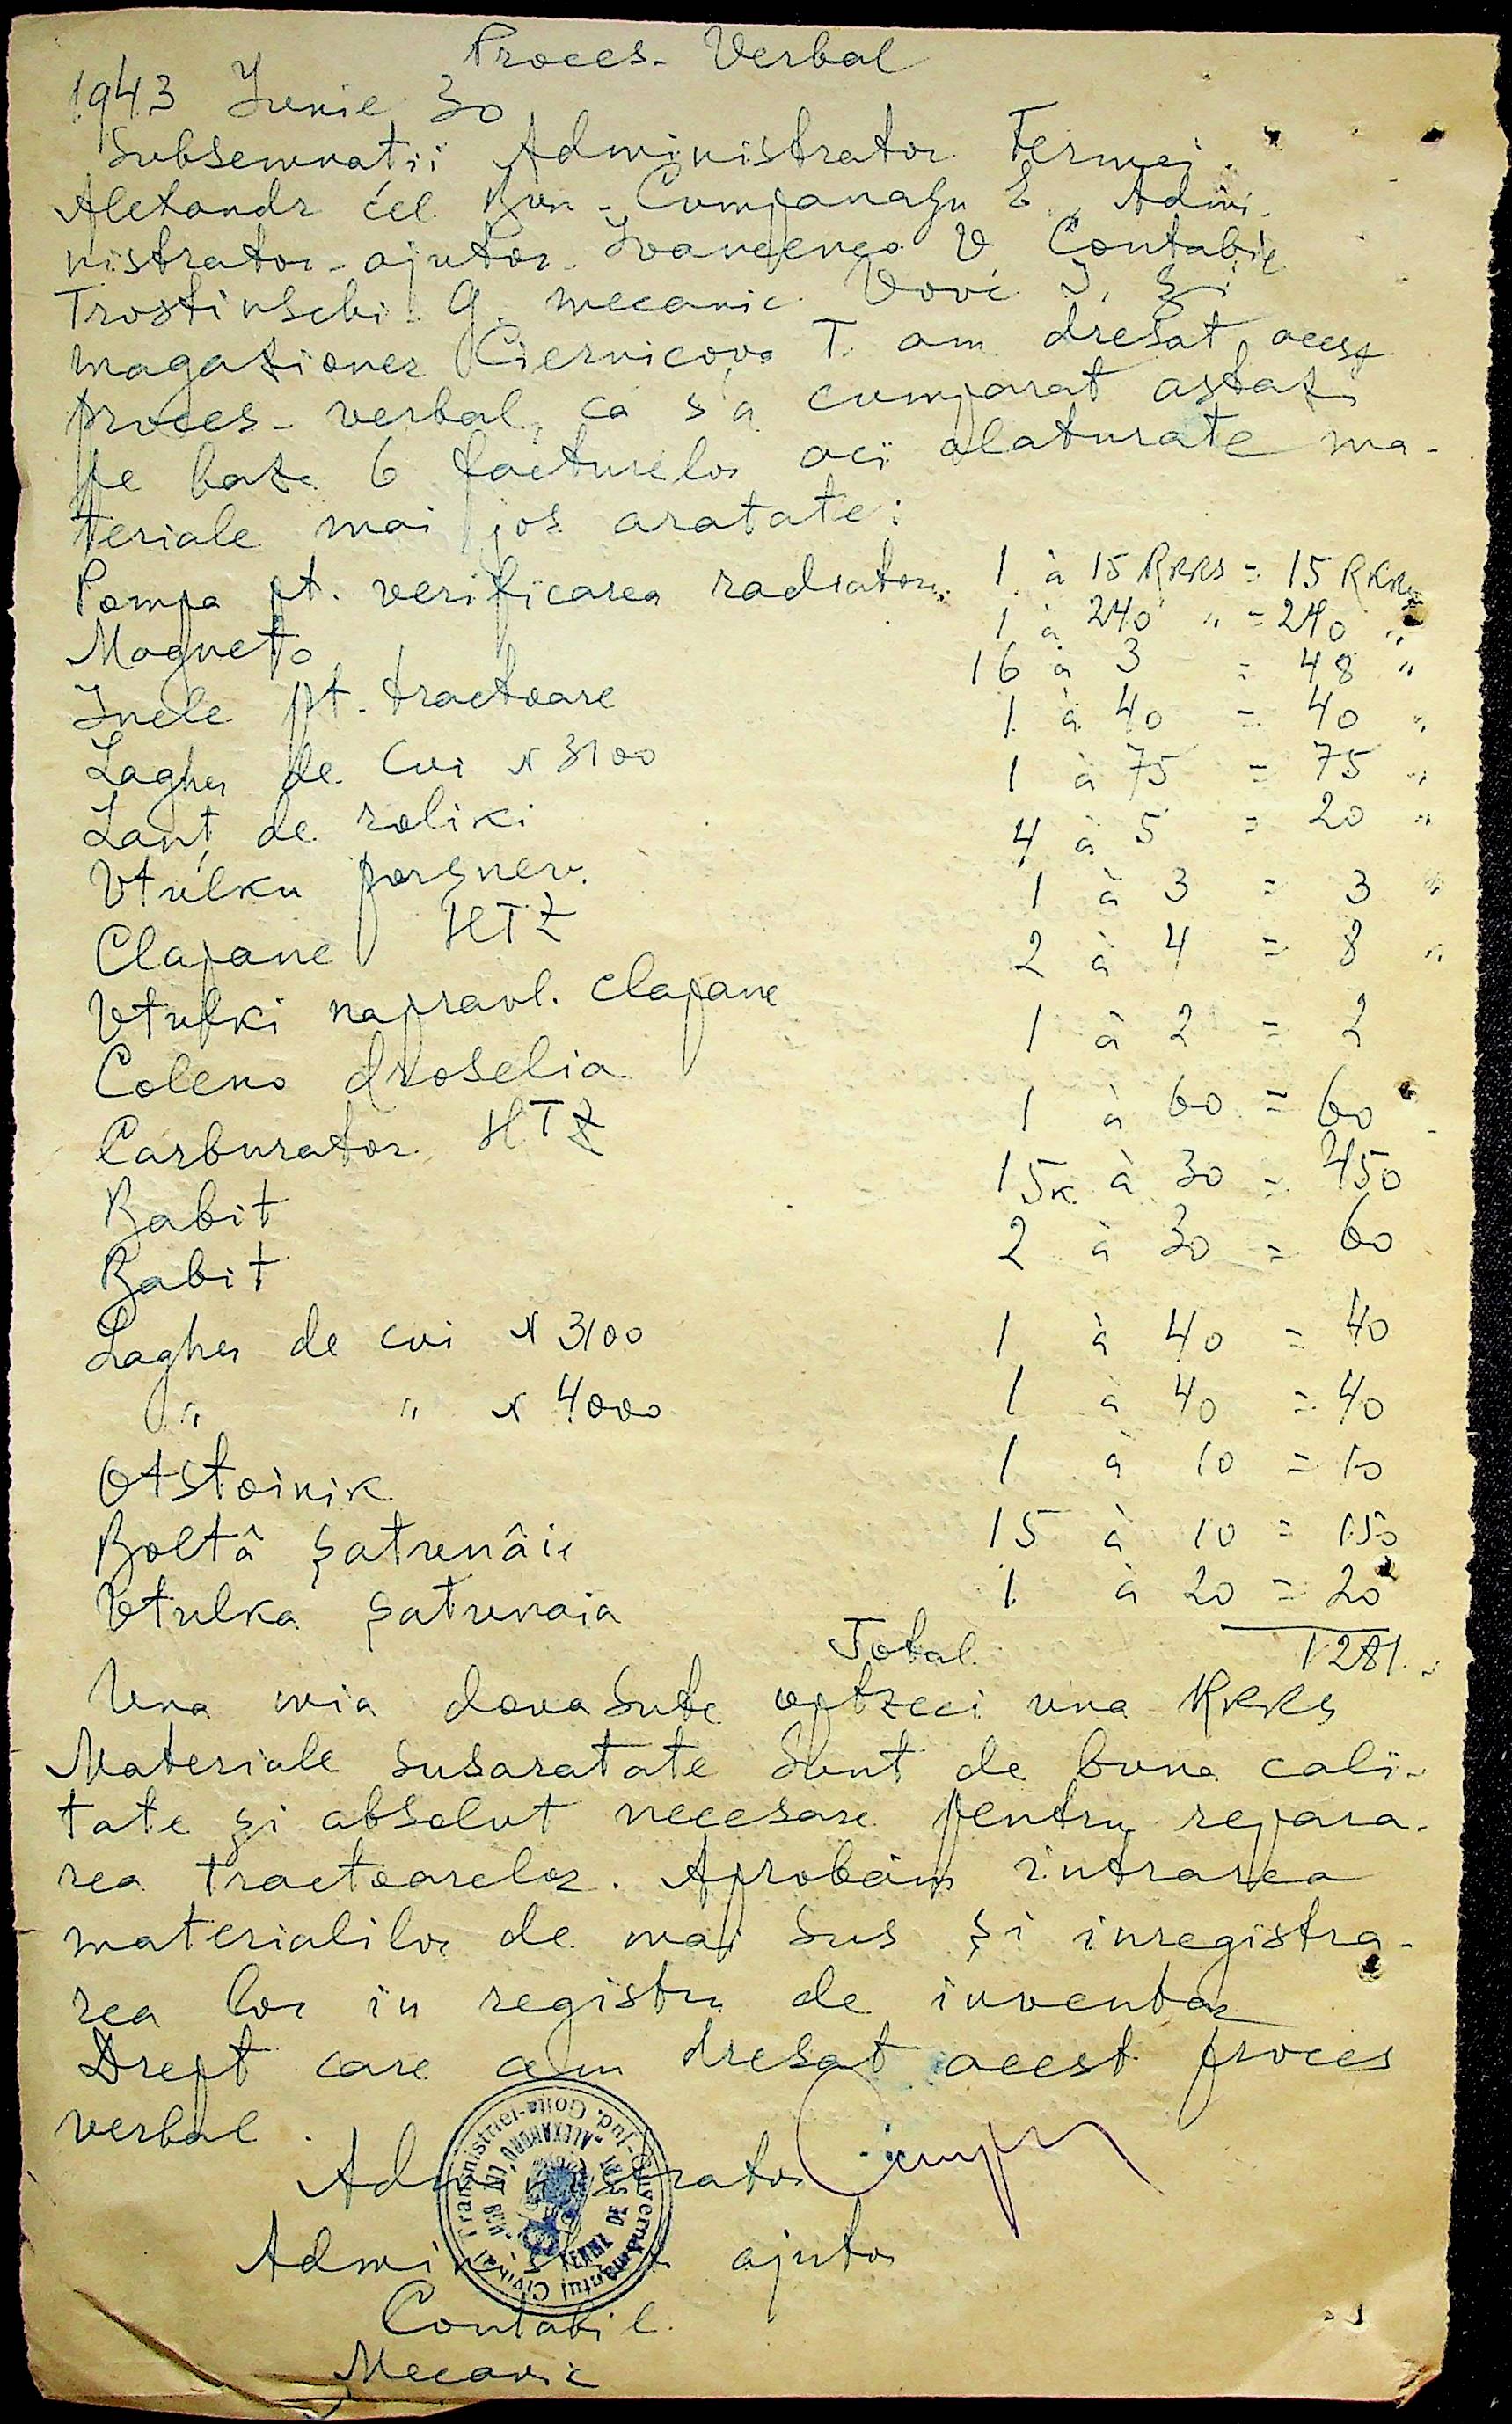 Proces-Verbal
1943 Iunie 30
Subsemnatii Administrator Fermei
Alexandr cel Bun - Cumpanaşu E., Admi-
nistrator-ajutor Ivancenco V. Contabil
Trostinschi G. mecanic Vovc I. şi
magazioner Ciernicova T. am dresat acest
proces-verbal, ca s'a cumparat astazi
pe baza 6 facturelor aci alaturate ma-
teriale mai jos aratate:
Pompa pt. verificarea radiator. 1 à 15 RKKS = 15 RKKS
Magneto 1 à 240 " = 240 "
Inele pt. tractoare 16 à 3 = 48 "
Lagher de cui N 3100 1 à 40 = 40 "
Lanţ de roliki 1 à 75 = 75 "
Vtulku porşnev. 4 à 5 = 20 "
Clapane HTZ 1 à 3 = 3 "
Vtulki napravl. clapane 2 à 4 = 8 "
Coleno droselia 1 à 2 = 2
Carburator HTZ 1 à 60 = 60
Babit 15k à 30 = 450
Babit 2 à 30 = 60
Lagher de cui N 3100 1 à 40 = 40
" " N 4000 1 à 40 = 40
Otstoinik 1 à 10 = 10
Boltâ şatunâie 15 à 10 = 150
Vtulka şatunaia 1 à 20 = 20
Total 1281. "
Una mia doua sute optzeci una RKKS
Materiale susaratate sunt de buna cali-
tate şi absolut necesare pentru repara-
rea tractoarelor. Aprobăm intrarea
materialilor de mai sus şi inregistra-
rea lor in registru de inventar
Drept care am dresat acest proces
verbal.
Administrator
Administrator ajutor
Contabil
Mecanic
Guvernământul Civil al Transnistriei-Jud. Golta
FERMA DE STAT "ALEXANDRU CEL BUN"